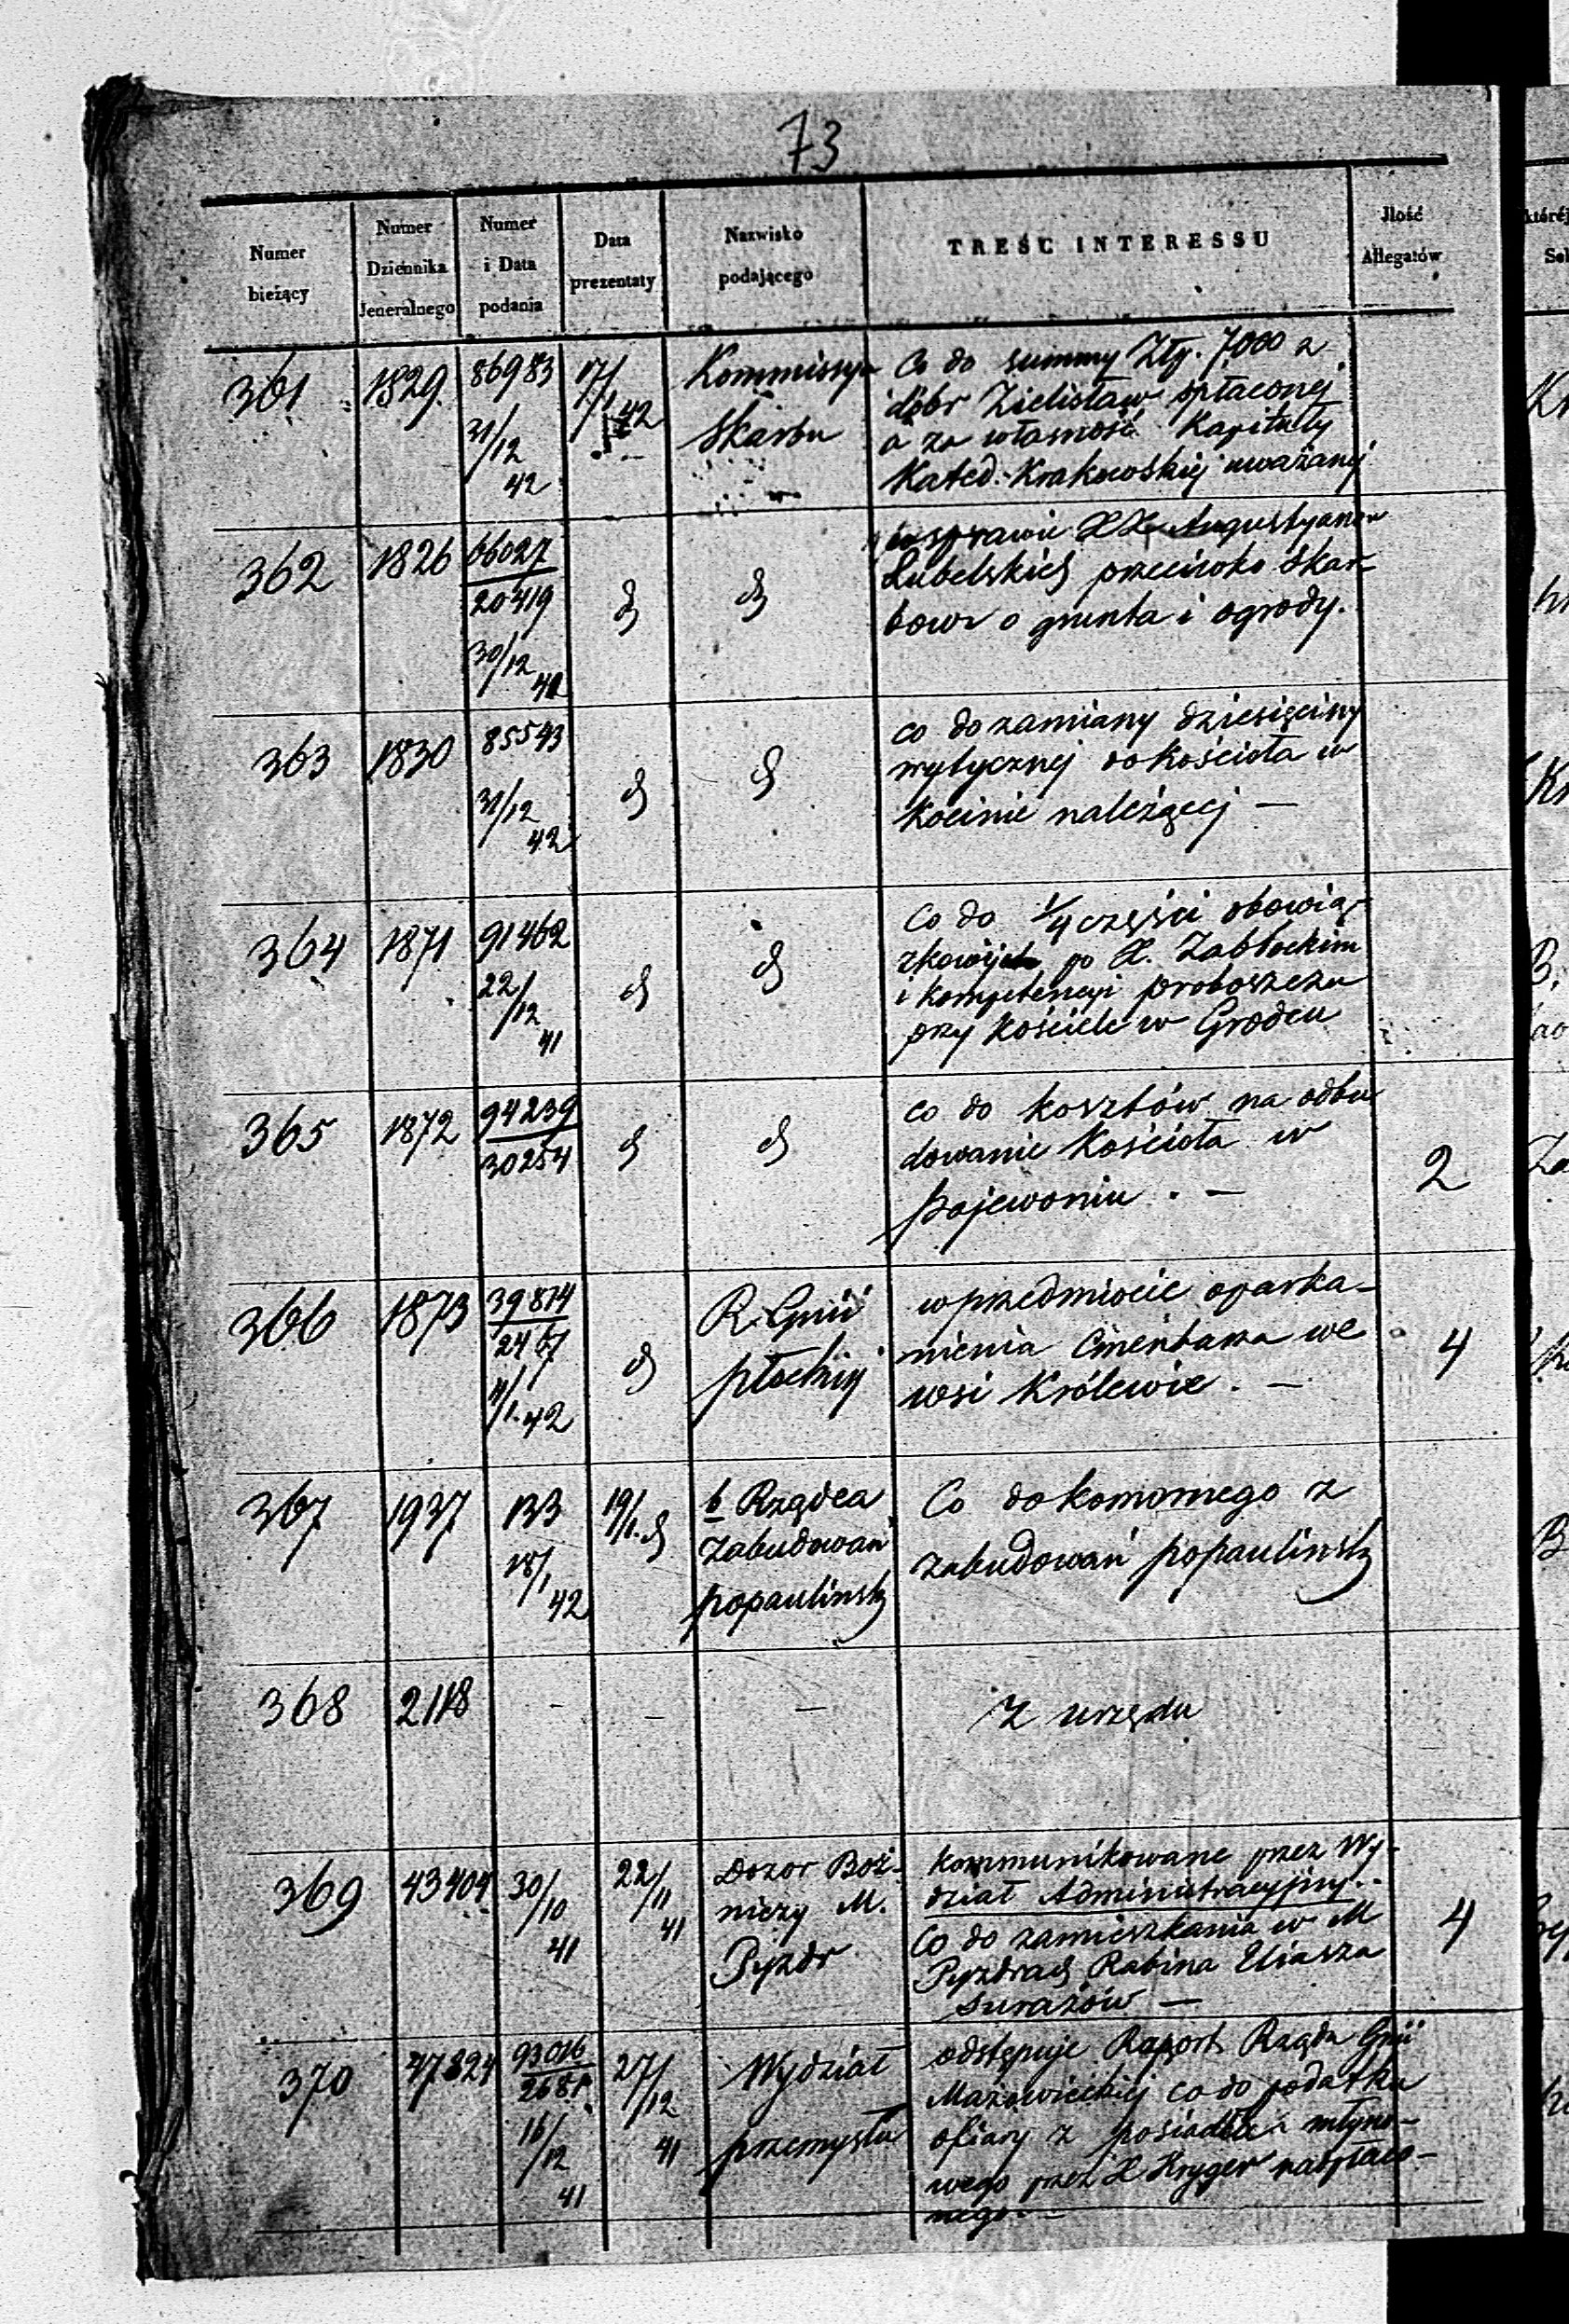 73
Numer bieżący
Numer Dziennika Jeneralnego
Numer i Data podania
Data prezentaty
Nazwisko podającego
TREŚĆ INTERESSU
Jlość Allegatów
361 1829 86983 31/12 42 17/1 42 Kommissya Skarbu
Co do summy Złp. 7000 z
dóbr Zielisław spłaconej
a za własność Kapituły
Kated. Krakowskiej uważanej
362 1826 66027/20419 30/12 42
w sprawie XX Augustyanów
Lubelskich przeciwko Skar-
bowi o grunta i ogrody.
363 1830 85543 31/12 42
co do zamiany dziesięciny
wytycznej do Kościoła w
Kocinie należącej —
364 1871 91462 22/12 41
Co do 1/4 części obowią-
po X. Zabłockim
i kompetencyi proboszcza
przy Kościele w Grodcu
365 1872 94239/30254
co do kosztów na odbu
dowanie Kościoła w
Pojewoniu . — 2
366 1873 39814/2467 11/1 42 R. Gnii
w przedmiocie oparka-
nienia Cmentarza we
wsi Królewie . — 4
367 1937 133 18/1 42 19/1
b Rządca
zabudowań
popaulinsk
Co do komornego z
zabudowań popaulinsk
368 2118 — — —
Z urzędu
369 43404 30/10 41 22/11 41
Dozor Boż-
niczy M.
Pyzdr
kommunikowane przez Wy-
dział Administracyjny.
Co do zamieszkania w M
Pyzdrach Rabina Eliasza
Surażów — 4
370 47824 93016 16/12 41 27/12 41
Wydział
przemysłu
odstępuje Raport Rządu Gnii
Mazowieckiej co do podatku
ofiary z młyno-
wego przez X Kryger
nego —